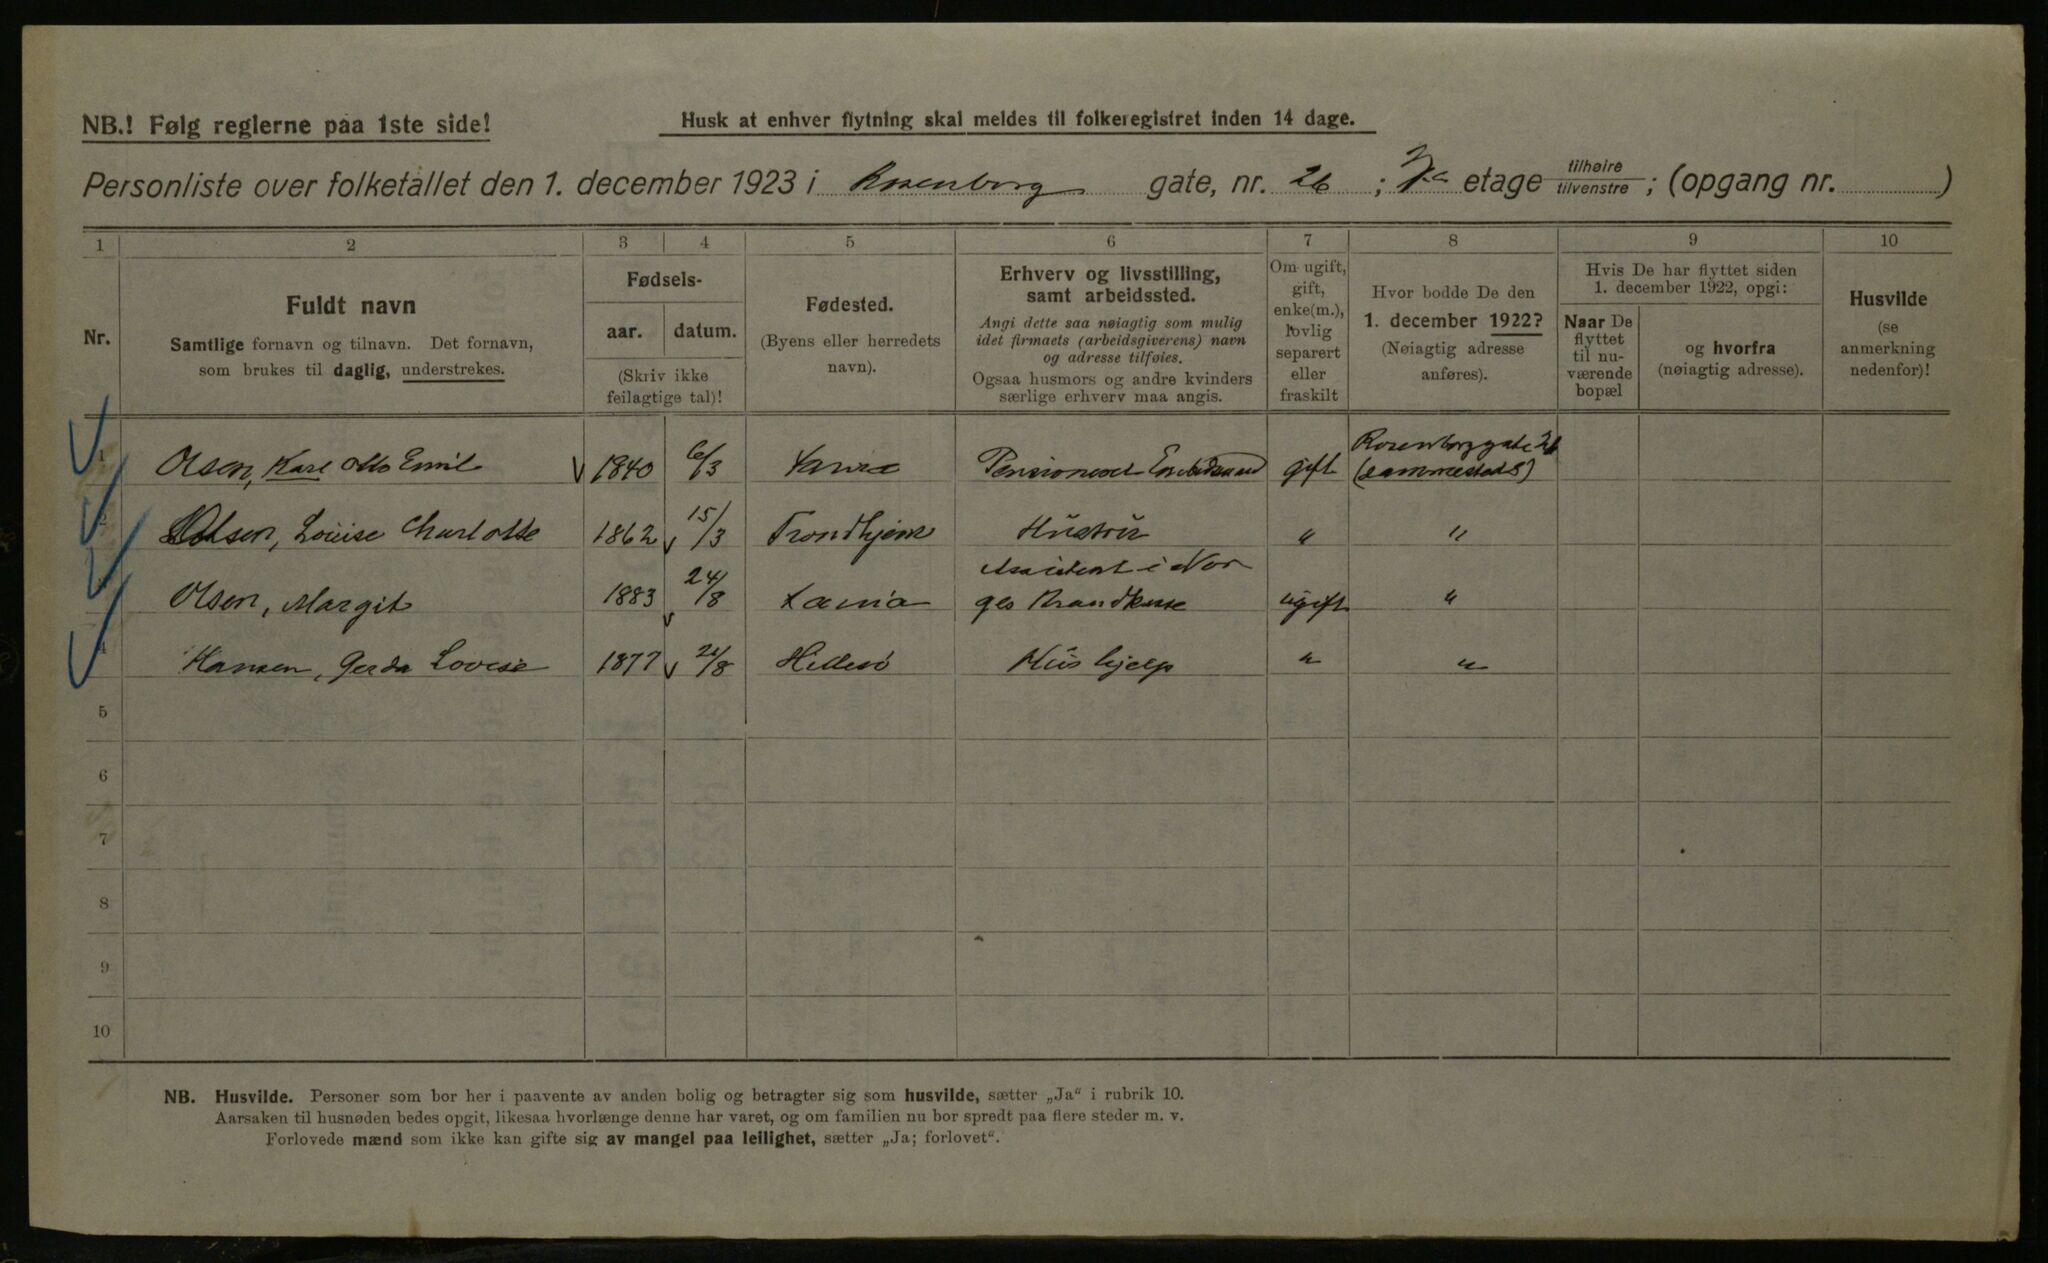 NB.! Følg reglerne paa 1ste side!
Husk at enhver flytning skal meldes til folkeregistret inden 14 dage.
Personliste over folketallet den 1. december 1923 i Rosenborg gate, nr. 26 ; etage tilhøire tilvenstre ; (opgang nr. )
1 2 3 4 5 6 7 8 9 10
Nr.
Fuldt navn
Samtlige fornavn og tilnavn. Det fornavn,
som brukes til daglig, understrekes.
Fødsels-
aar. datum.
(Skriv ikke
feilagtige tal)!
Fødested.
(Byens eller herredets
navn).
Erhverv og livsstilling,
samt arbeidssted.
Angi dette saa nøiagtig som mulig
idet firmaets (arbeidsgiverens) navn
og adresse tilføies.
Ogsaa husmors og andre kvinders
særlige erhverv maa angis.
Om ugift,
gift,
enke(m.),
lovlig
separert
eller
fraskilt
Hvor bodde De den
1. december 1922?
(Nøiagtig adresse
anføres).
Hvis De har flyttet siden
1. december 1922, opgi:
Naar De
flyttet
til nu-
værende
bopæl
og hvorfra
(nøiagtig adresse).
Husvilde
(se
anmerkning
nedenfor)!
1 Olsen, Karl Otto Emil 1840 6/3 Pensioneret gift Rosenborggate 26
(sammesteds)
2 Olsen, Louise Charlotte 1862 15/3 Trondhjem Hustru " "
Assistent i Nor
Olsen, Margit 1883 24/8 ges Brandkasse ugift "
4 Hansen, Gerda Lovise 1877 21/8 Hillesö Hushjelp " "
5
6
7
8
9
10
NB. Husvilde. Personer som bor her i paavente av anden bolig og betragter sig som husvilde, sætter „Ja" i rubrik 10.
Aarsaken til husnøden bedes opgit, likesaa hvorlænge denne har varet, og om familien nu bor spredt paa flere steder m. v.
Forlovede mænd som ikke kan gifte sig av mangel paa leilighet, sætter „Ja; forlovet".